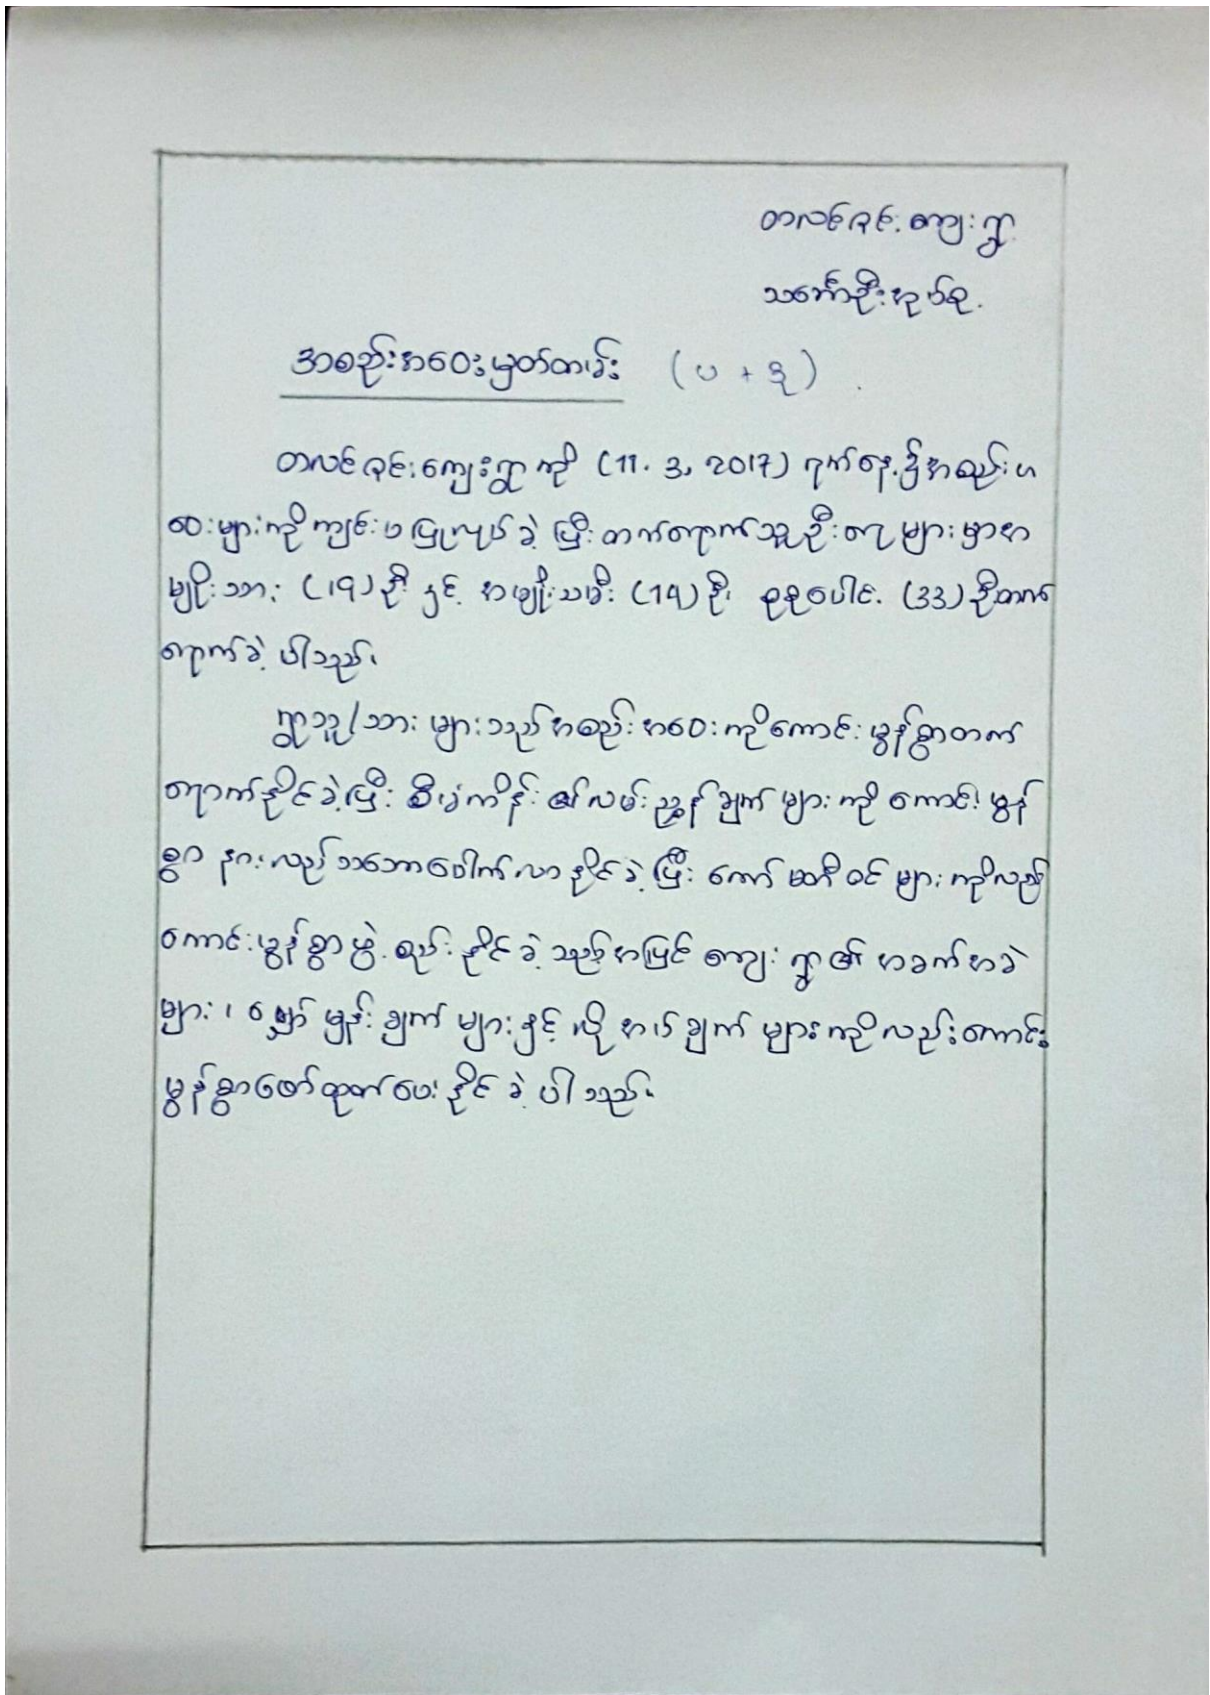 တလင်ဂုင်းကျေးရွာ
သင်္ဘောဦးအုပ်စု.
အစည်းအဝေးမှတ်တမ်း (ပ + ဒု)
တလင်ဂုင်းကျေးရွာကို (11. 3. 2017) ရက်နေ့၌အစည်းအ
ဝေးများကိုကျင်းပပြုလုပ်ခဲ့ပြီးတက်ရောက်သူဦးရေများမှာအ
မျိုးသား (19) ဦး နှင့် အမျိုးသမီး (14) ဦး စုစုပေါင်း (33) ဦးတက်
ရောက်ခဲ့ပါသည်။
ရွာသူ/သားများသည်အစည်းအဝေးကိုကောင်းမွန်စွာတက်
ရောက်နိုင်ခဲ့ပြီး စီမံကိန်း၏လမ်းညွှန်ချက်များကို ကောင်းမွန်
စွာ နားလည်သဘောပေါက်လာနိုင်ခဲ့ပြီး ကော်မတီဝင်များကိုလည်း
ကောင်းမွန်စွာဖွဲ့စည်းနိုင်ခဲ့သည့်အပြင် ကျေးရွာ၏ အခက်အခဲ
များ၊ မျှော်မှန်းချက်များနှင့် လိုအပ်ချက်များကိုလည်းကောင်း
မွန်စွာဖော်ထုတ်ပေးနိုင်ခဲ့ပါသည်။